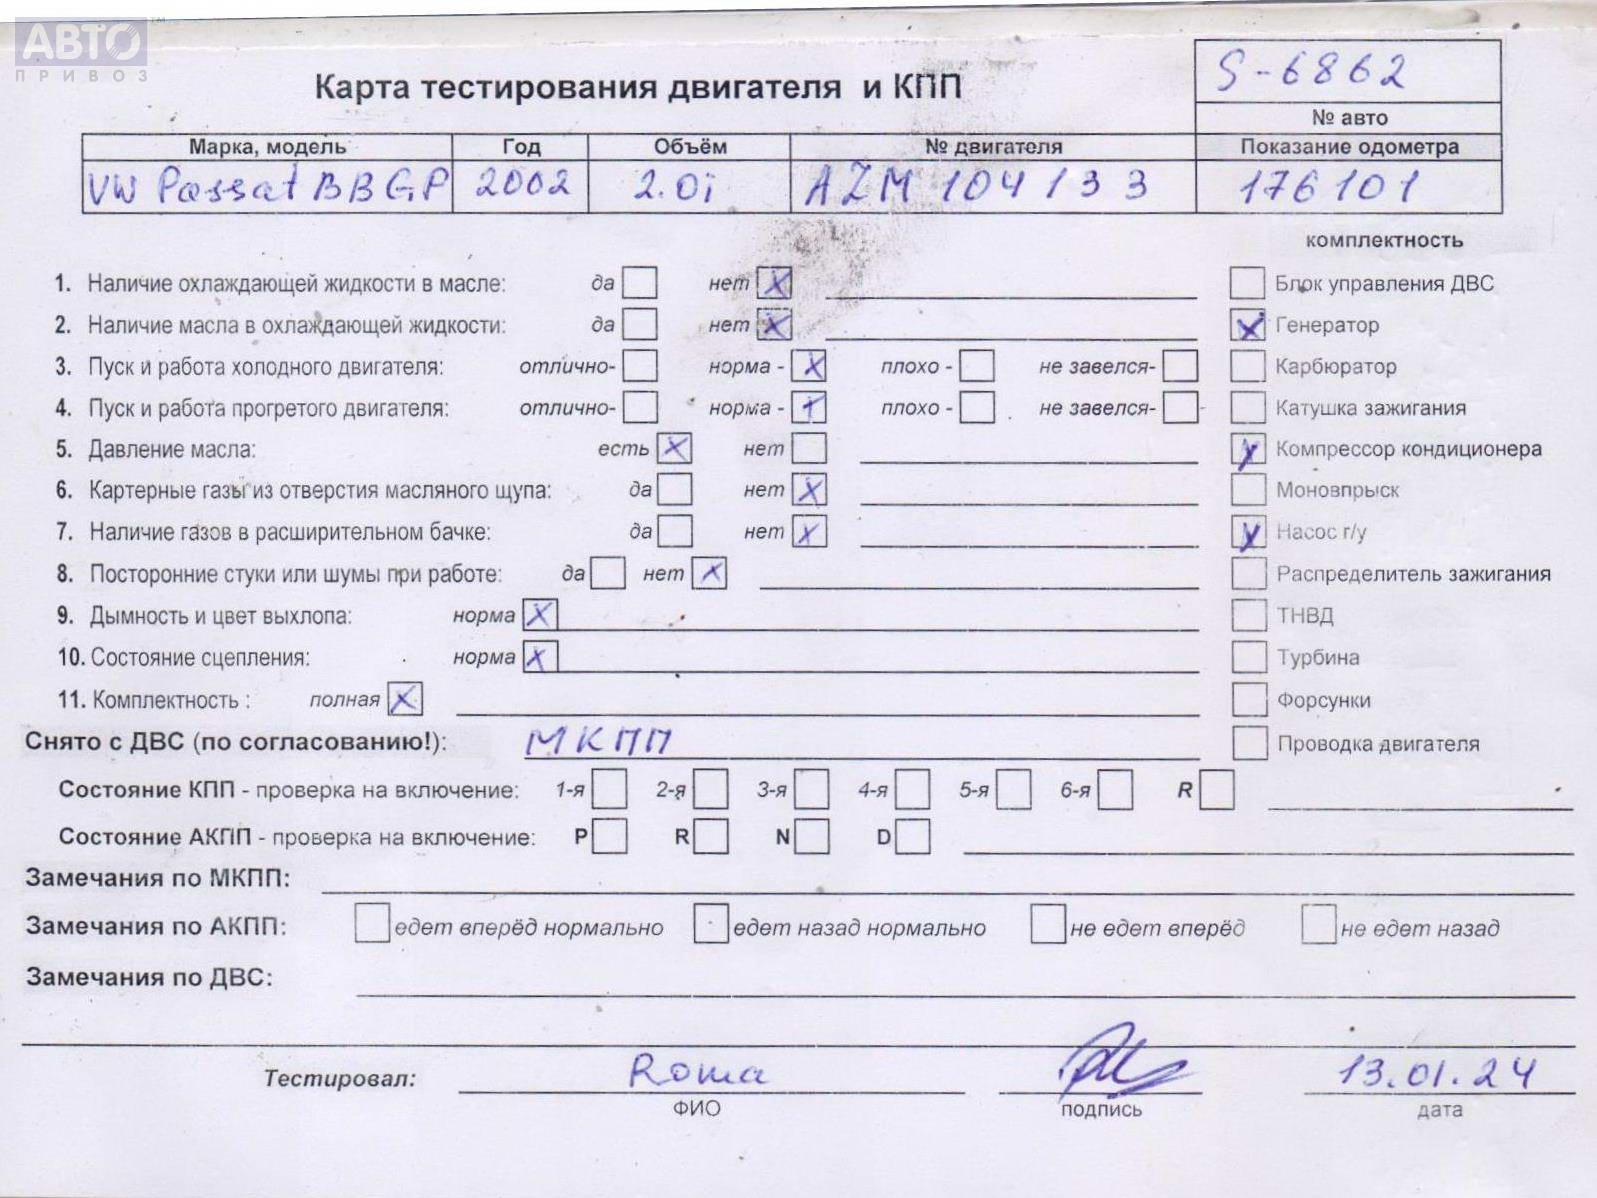 АВТО
ПРИВОЗ
S-6862
Карта тестирования двигателя и КПП
№ авто
Марка, модель Год Объём № двигателя Показание одометра
VW Passat BBGP 2002 2.0i AZM 104133 176101
комплектность
1. Наличие охлаждающей жидкости в масле: да нет X Блок управления ДВС
2. Наличие масла в охлаждающей жидкости: да нет X X Генератор
3. Пуск и работа холодного двигателя: отлично- норма - X плохо - не завелся- Карбюратор
4. Пуск и работа прогретого двигателя: отлично- норма - X плохо - не завелся- Катушка зажигания
5. Давление масла: есть X нет X Компрессор кондиционера
6. Картерные газы из отверстия масляного щупа: да нет X Моновпрыск
7. Наличие газов в расширительном бачке: да нет X X Насос г/у
8. Посторонние стуки или шумы при работе: да нет X Распределитель зажигания
9. Дымность и цвет выхлопа: норма X ТНВД
10. Состояние сцепления: норма X Турбина
11. Комплектность : полная X Форсунки
Снято с ДВС (по согласованию!): МКПП Проводка двигателя
Состояние КПП - проверка на включение: 1-я 2-я 3-я 4-я 5-я 6-я R
Состояние АКПП - проверка на включение: P R N D
Замечания по МКПП:
Замечания по АКПП: едет вперёд нормально едет назад нормально не едет вперёд не едет назад
Замечания по ДВС:
Тестировал: Roma 13.01.24
ФИО подпись дата